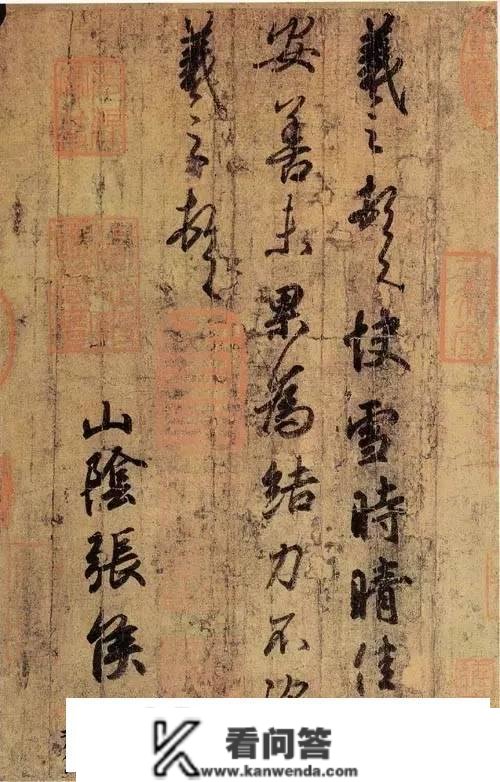 羲之頓首快雪時晴佳
安善未果為結力不次
羲之頓首
山陰張侯
看问答
www.kanwenda.com